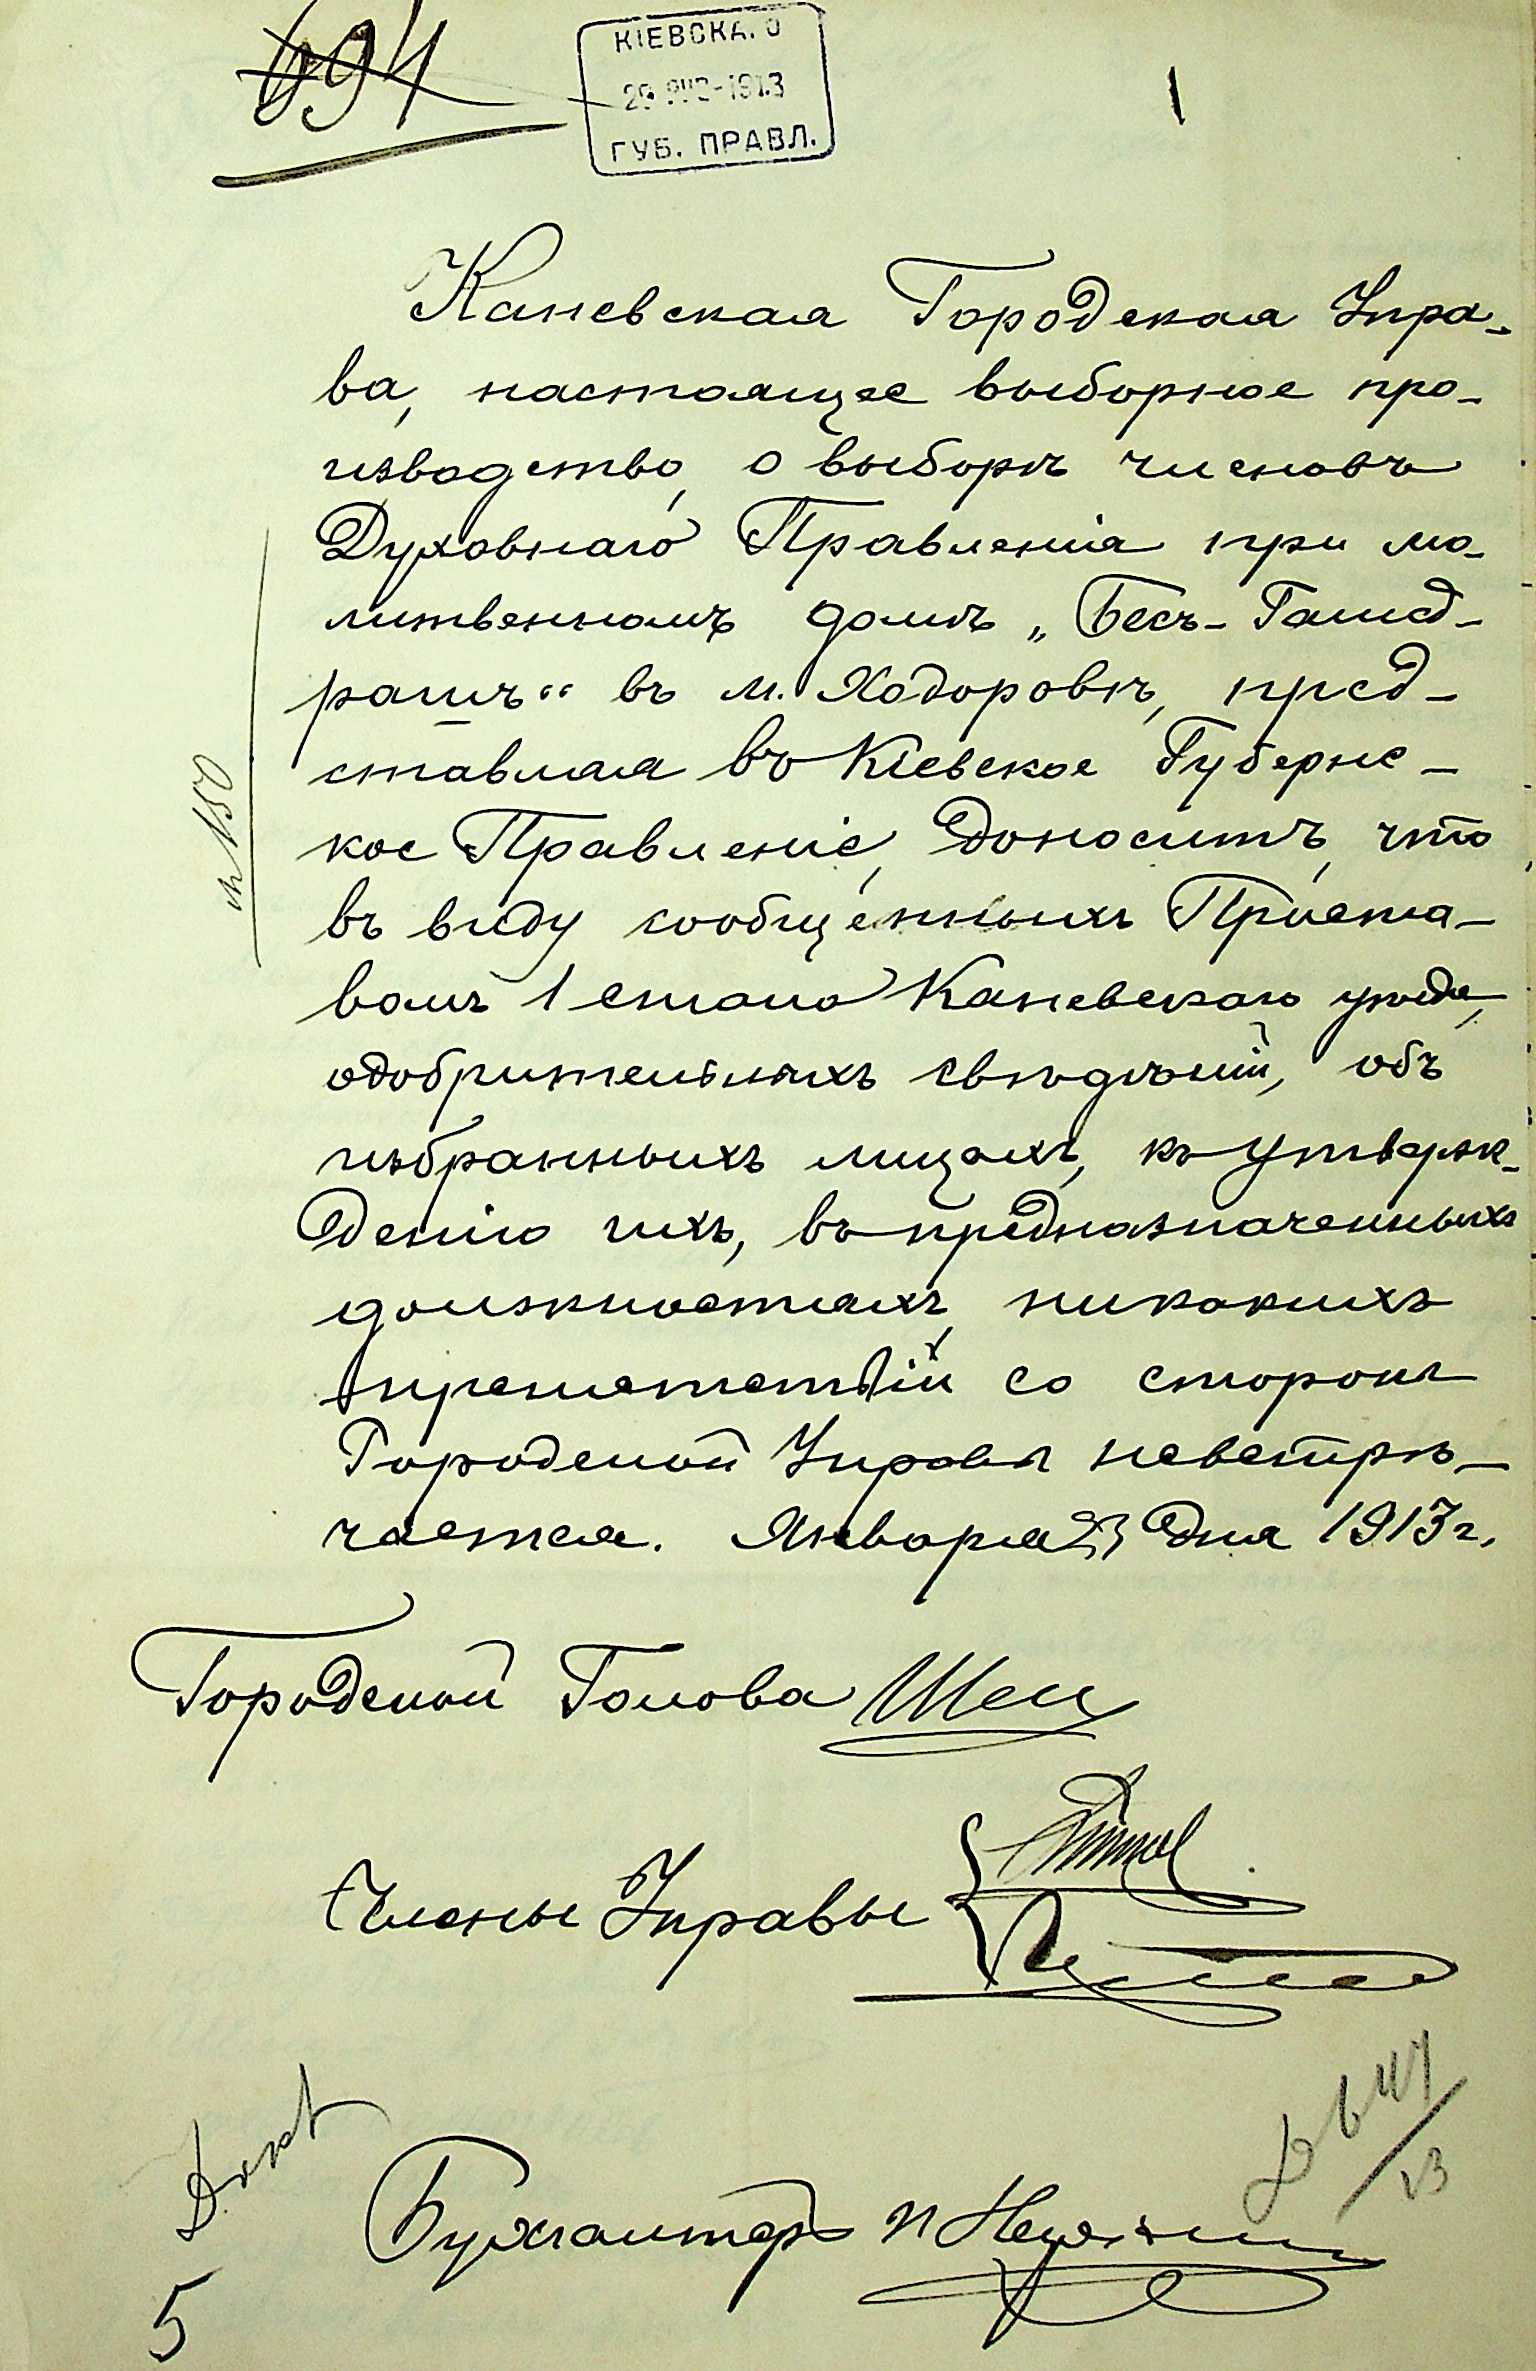 694
КІЕВСКА. О
29 ЯНВ-1913
ГУБ. ПРАВЛ.
1
Каневская Городская Упра-
ва, настоящее выборное про-
изводство, о выборѣ членовъ
Духовнаго Правленія при мо-
литвенномъ домѣ „Бесъ-Гамед-
рашъ“ въ м. Ходоровѣ, пред-
ставляя въ Кіевское Губернс-
кое Правленіе, доноситъ, что
въ виду сообщенныхъ Приста-
вомъ 1 стана Каневскаго уѣзда,
одобрительныхъ свѣдѣній, объ
избранныхъ лицахъ, къ утверж-
денію ихъ, въ предназначенныхъ
должностяхъ, никакихъ
препятствій со стороны
Городской Управы невстрѣ-
чается. Января 23 дня 1913 г.
Городской Голова
Члены Управы
Бухгалтеръ
5